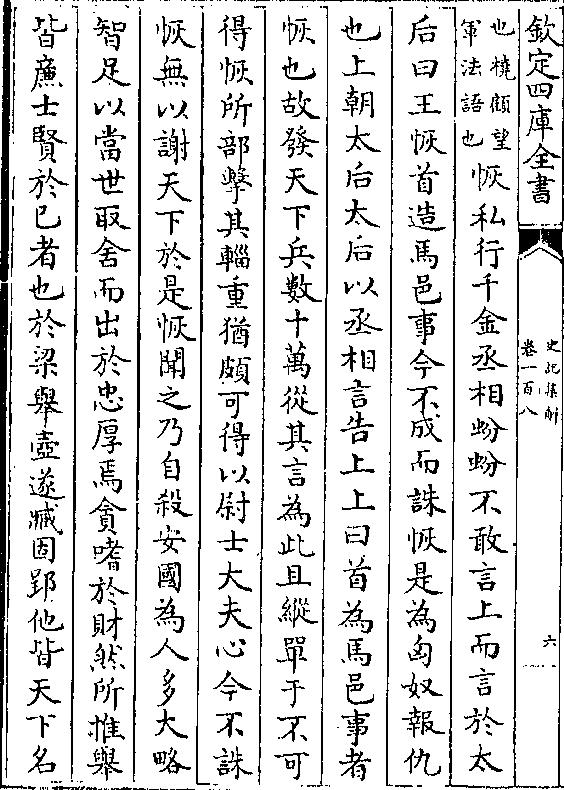 欽定四庫全書
史記集解
卷一百八
六
也橈顧望
軍法語也
恢私行千金丞相蚡蚡不敢言上而言於太
后曰王恢首造馬邑事今不成而誅恢是為匈奴報仇
也上朝太后太后以丞相言告上上曰首為馬邑事者
恢也故發天下兵數十萬從其言為此且縱單于不可
得恢所部擊其輜重猶頗可得以尉士大夫心今不誅
恢無以謝天下於是恢聞之乃自殺安國為人多大略
智足以當世取舍而出於忠厚焉貪嗜於財然所推舉
皆廉士賢於已者也於梁舉壺遂臧固郢他皆天下名